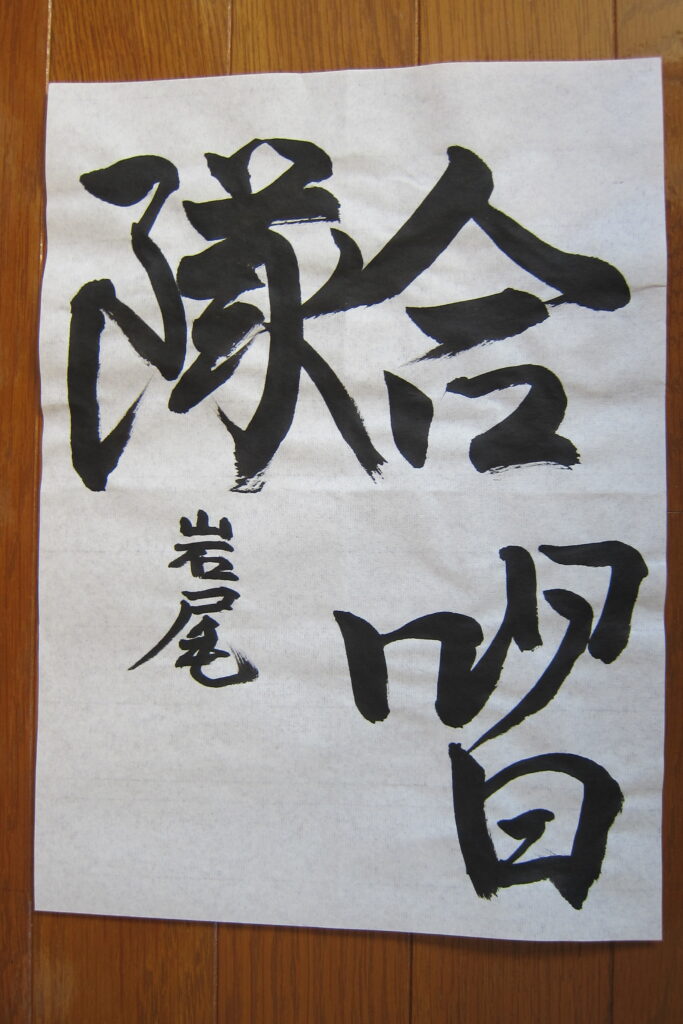 合唱
隊
岩尾